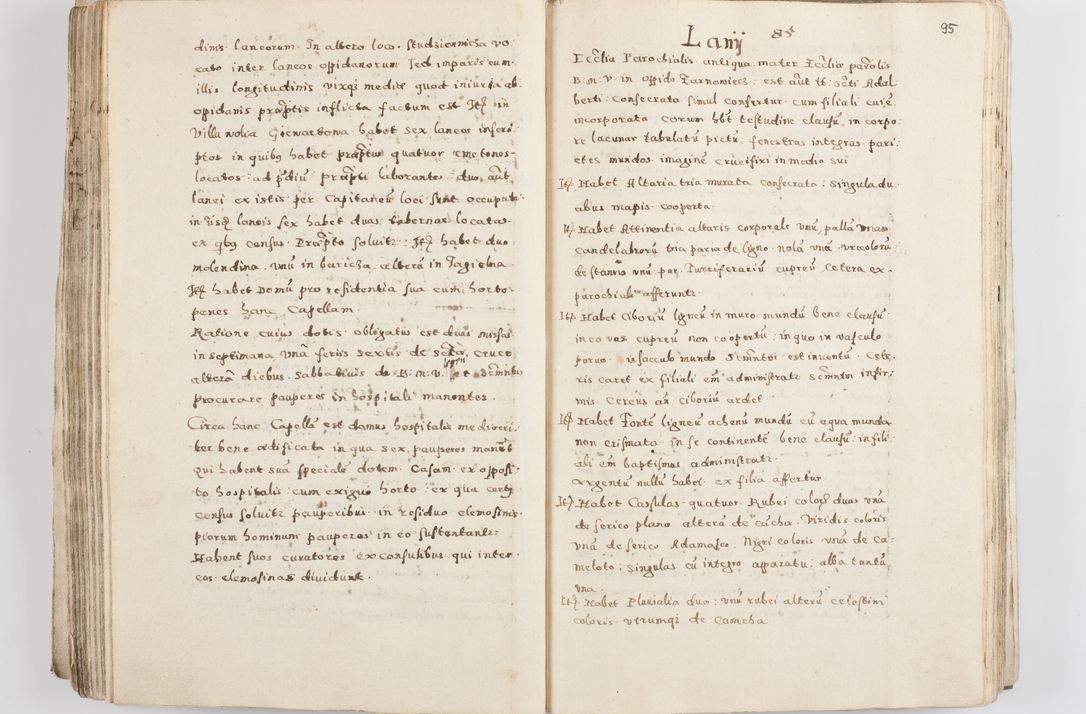 dinis laneorum. In altero loco. Studziennicha vo
cato inter laneos oppidanorum sed imparis cum
illis longitudinis vixqƺ medite quod iniuria ab
oppidanis præptis inflicta factum est Itꝫ in
Villa nolia habet sex laneos inscri
ptos in quibꝫ habet præptus quatuor cmetones
locatos: ad p̄diū præpti laborantes duo aūt
lanei ex istis per Capitaneū loci sunt occupati
in ijsdꝫ laneis sex habet duas tabernas locatas
ex qbꝫ census Præpto soluit: Itꝫ habet duo
molendina. vnū in baricha alterā in Jagielna
Itꝫ habet Domū pro residentia sua cum horto
penes hanc Capellam.
Ratione cuius dotis obligatus est duas missas
in septimana vnā feriis sextis de sctā cruce
alterā diebus. Sabbativis de B: M: V. et scmntis
procurare pauperes in hospitali manentes.
Circa hanc Capellā est domus hospitalis mediocri
ter bene ædificata in qua sex pauperes manēt
qui habent suā speciale dotem. Casam ex opposi
to hospitalis cum exiguo horto: ex qua certꝫ
census soluitr pauperibus. in residuo elemosinis
piorum hominum pauperes in eo sustentantr
Habent suos curatores ex consulibus qui inter
eos elemosinas dividunt.
95
Lanij 85
Ecclia Parochialis antiqua mater Ecclie parolis
B: M: V: in Oppido Tarnowiecz: est aūt tt: scti Adal
berti: Consecrata simul confertur cum filiali cuiꝫ
incorporata corum hbt testudine clausū, in corpo
re lacunar tabulatū pictū, fenestras integras pari
etes mundos. imaginē crucifixi in medio sui
Itꝫ Habet Altaria tria murata consecrata: singula du
abus mapis cooperta.
Itꝫ Habet Attinentia altaris corporale vnū, pallā vnā
candelabrorū tria paria de ligno. nolā vnā. vrceolorū
de stanno vnū par. Turriferariū cupreū, Cetera ex
parochiali afferuntr
Itꝫ Habet Ciboriū ligneū in muro mundū bene clausū
in eo vas cupreū non coopertū: in quo in vasculo
paruo. in sacculo mundo Scmntui est inuentū. Cete
ris caret ex filiali em̄ administratr scmntm infir
mis. Cereus an̄ ciborium ardet.
Itꝫ Habet Fontē ligneū ahenū mundū cū aqua munda
non crismata. In se continentē bene clausū. in fili
ali em̄ baptismus administratr.
Argentū nullū habet. ex filia affertur
Itꝫ Habet Casulas quatuor. Rubei colorꝫ duas vnā
de serico plano alterā de cācha. Viridis coloris
vnā de serico Adamasco: Nigri coloris vnā de Ca:
meloto: singulas cū integro apparatu: alba tantū
vna.
Itꝫ Habet Pluvialia duo: vnū rubei alterū celestini
coloris vtrumqꝫ de camcha